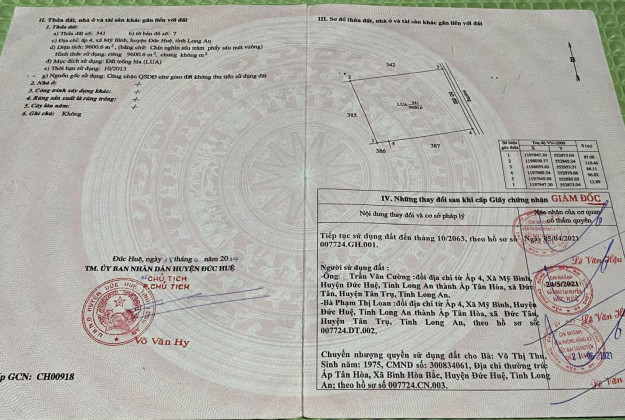 II. Thửa đất, nhà ở và tài sản khác gắn liền với đất
1. Thửa đất:
a) Thửa đất số: 341 b) tờ bản đồ số: 7
c) Địa chỉ: ấp 4, xã Mỹ Bình, huyện Đức Huệ, tỉnh Long An
d) Diện tích: 9600.6 m², (bằng chữ: Chín nghìn sáu trăm phẩy sáu mét vuông)
Hình thức sử dụng: riêng 9600.6 m², chung không m²
đ) Mục đích sử dụng: Đất trồng lúa (LUA)
e) Thời hạn sử dụng: 10/2013
g) Nguồn gốc sử dụng: Công nhận QSDĐ như giao đất không thu tiền sử dụng đất
2. Nhà ở:
3. Công trình xây dựng khác:
4. Rừng sản xuất là rừng trồng:
5. Cây lâu năm:
6. Ghi chú: Không
Đức Huệ, ngày
TM. ỦY BAN NHÂN DÂN HUYỆN ĐỨC HUỆ
CHỦ TỊCH
P. CHỦ TỊCH
Võ Văn Hy
GCN: CH00918
III. Sơ đồ thửa đất, nhà ở và tài sản khác gắn liền với đất
342
385
LUA 341 9600.6
386
387
Số hiệu góc thửa
Tọa độ VN-2000
X Y S (m)
IV. Những thay đổi sau khi cấp Giấy chứng nhận
GIÁM ĐỐC
Nội dung thay đổi và cơ sở pháp lý
Xác nhận của cơ quan có thẩm quyền
Tiếp tục sử dụng đất đến tháng 10/2063, theo hồ sơ số Ngày 05/04/2021
007724.GH.001.
Lê Văn Hậu
Người sử dụng đất :
-Ông: Trần Văn Cường :đổi địa chỉ từ Ấp 4, Xã Mỹ Bình,
Huyện Đức Huệ, Tỉnh Long An thành Ấp Tân Hòa, xã Đức
Tân, Huyện Tân Trụ, Tỉnh Long An.
24/5/2021
-Bà Phạm Thị Loan :đổi địa chỉ từ Ấp 4, Xã Mỹ Bình, Huyện
Đức Huệ, Tỉnh Long An thành Ấp Tân Hòa, xã Đức Tân,
Huyện Tân Trụ, Tỉnh Long An, theo hồ sơ số
007724.DT.002.
Lê Văn
Chuyển nhượng quyền sử dụng đất cho Bà: Võ Thị Thu,
Sinh năm: 1975, CMND số: 300834061, Địa chỉ thường trú:
Ấp Tân Hòa, Xã Bình Hòa Bắc, Huyện Đức Huệ, Tỉnh Long
An; theo hồ sơ số 007724.CN.003.
Lê Văn